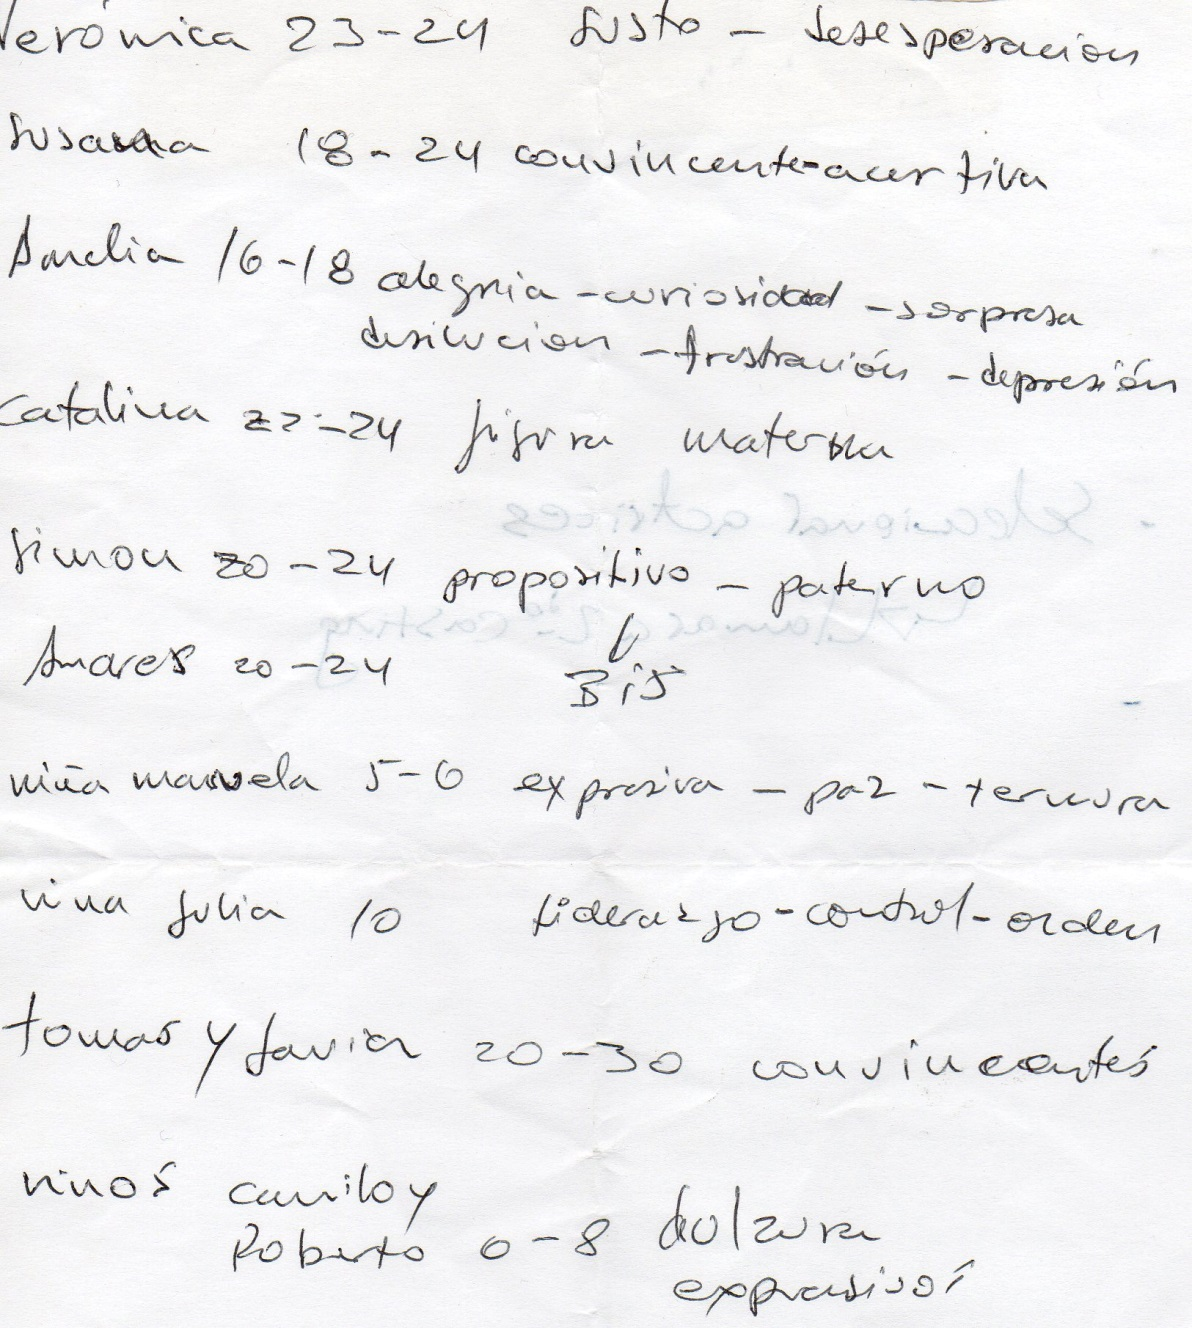 Verónica 23-24 susto - desesperacion
Susana 18-24 convincente-acertiva
Amelia 16-18 alegria - curiosidad - sorpresa
desilucion - frostración - depresión
Catalina 22-24 figura materna
Simon 20-24 propositivo - paterno
20-24 Bis
niña manuela 5-6 expresiva - paz - ternura
nina Julia 10 Liderazgo-control-orden
tomas y Javier 20-30 convincentes
ninos camilo y
Roberto 6-8 dulzura
expresivos